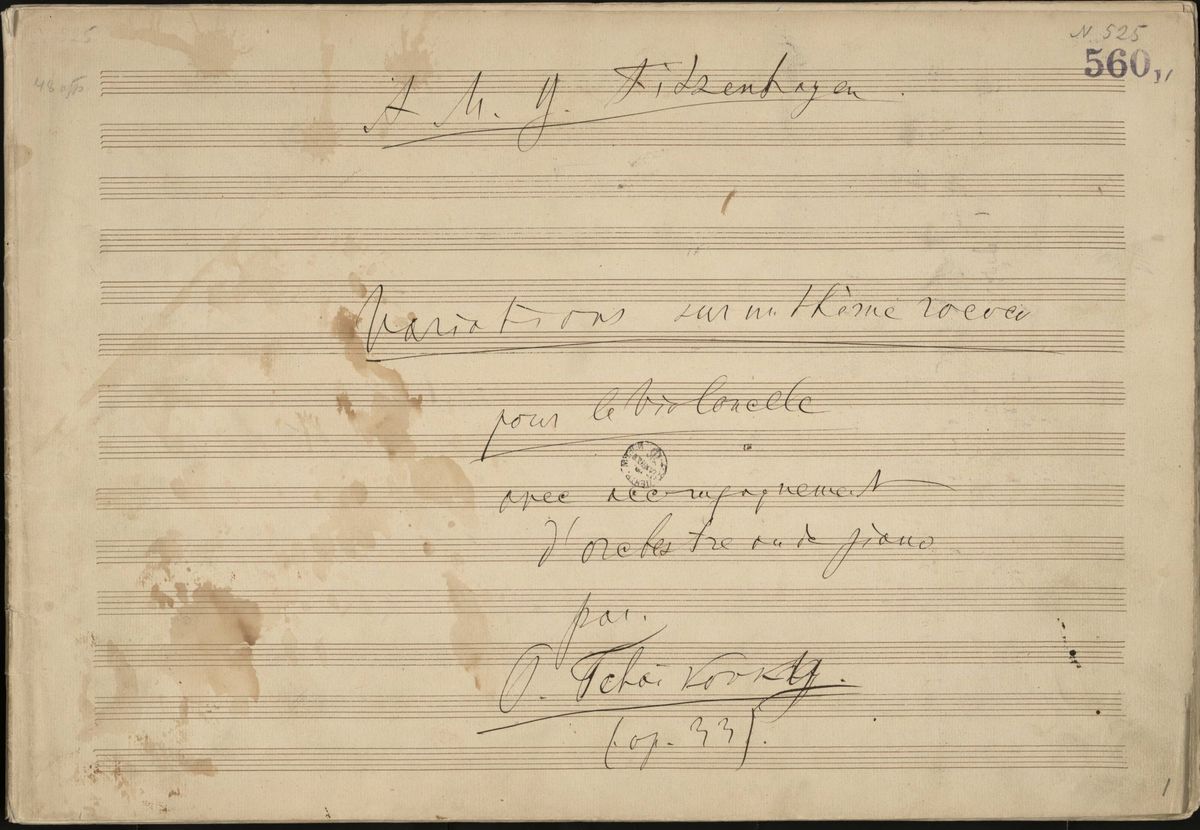 N. 525
560
A M. G. Fitzenhagen.
Variations sur un thème rococo
pour le Violoncelle
avec accompagnement
d'orchestre ou de piano
par.
P. Tchaïkovsky.
(op. 33).
1